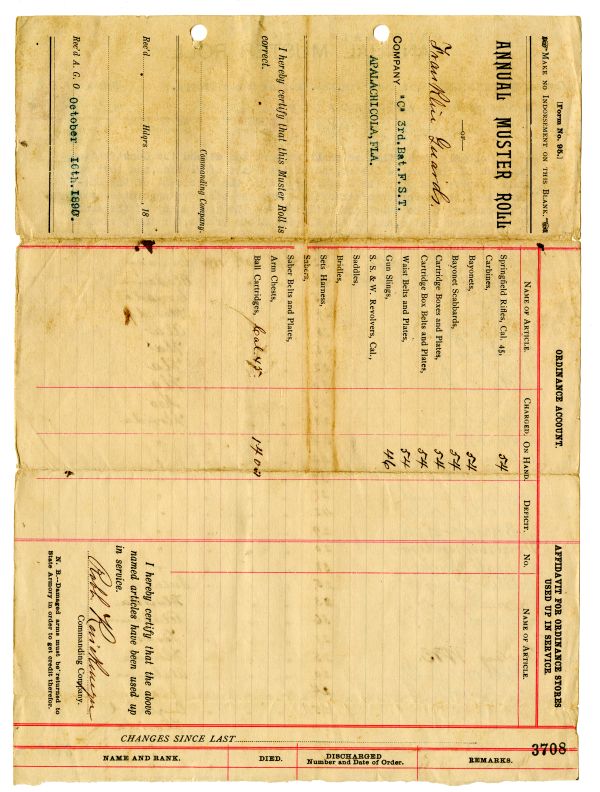 [Form No. 95.]
MAKE NO INDORSEMENT ON THIS BLANK.
ANNUAL MUSTER ROLL
—OF—
Franklin Guards.
COMPANY "C" 3rd.Bat.F.S.T.
APALACHICOLA, FLA.
I hereby certify that this Muster Roll is
correct.
Commanding Company.
Rec'd Hdqrs , 18
Rec'd A. G. O October 16th.1890.
ORDINANCE ACCOUNT.
NAME OF ARTICLE. CHARGED. ON HAND. DEFICIT.
Springfield Rifles, Cal. 45, 54
Carbines,
Bayonets, 54
Bayonet Scabbards, 54
Cartridge Boxes and Plates, 54
Cartridge Box Belts and Plates, 54
Waist Belts and Plates, 54
Gun Slings, 46
S. & W. Revolvers, Cal.,
Saddles,
Bridles,
Sets Harness,
Sabers,
Saber Belts and Plates,
Arm Chests,
Ball Cartridges, Cal. 45. 1400
AFFIDAVIT FOR ORDINANCE STORES
USED UP IN SERVICE.
No. NAME OF ARTICLE.
I hereby certify that the above
named articles have been used up
in service.
Commanding Company.
N. B.—Damaged arms must be returned to
State Armory in order to get credit therefor.
CHANGES SINCE LAST
3708
NAME AND RANK. DIED. DISCHARGED REMARKS.
Number and Date of Order.